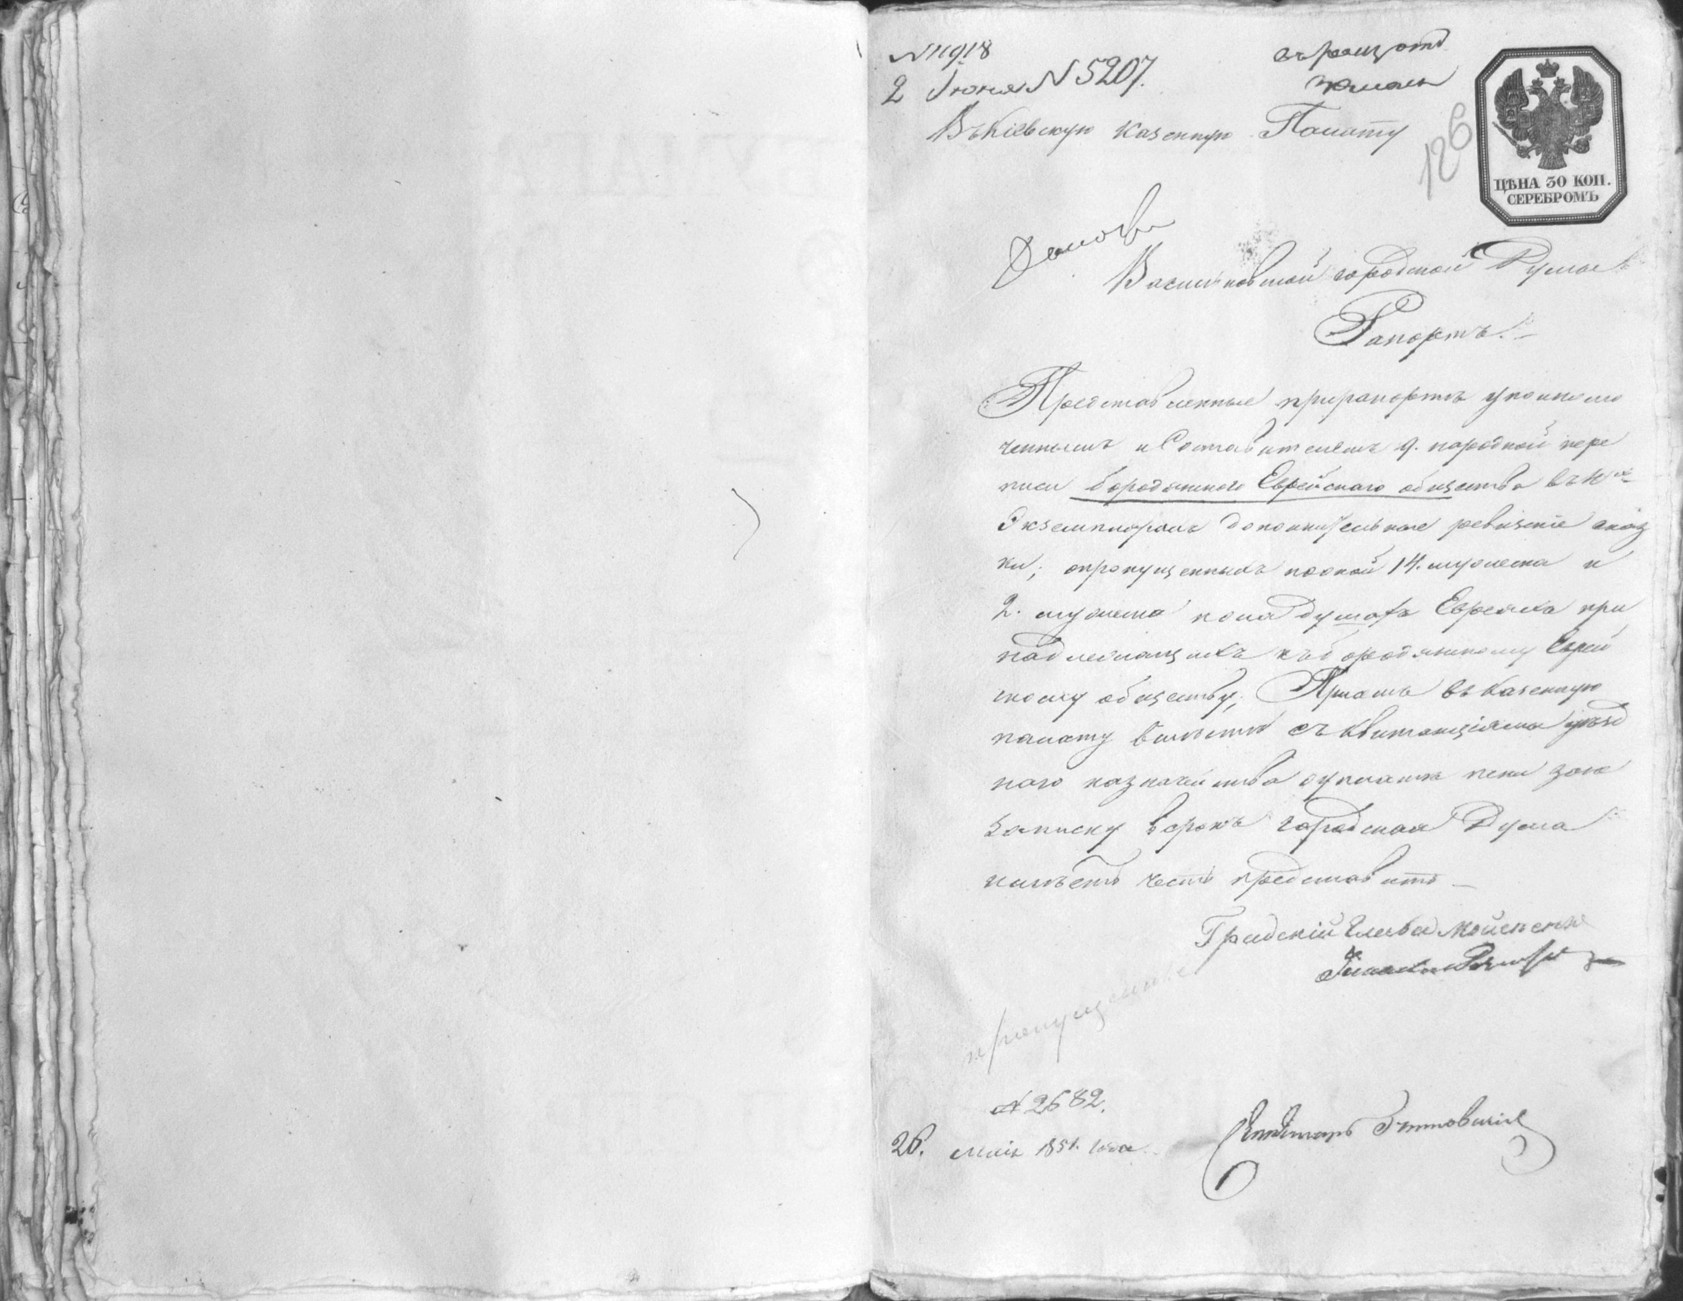 N 11918
2 Июня N 5207.
Въ Кіевскую Казенную Палату
126
ЦѢНА 30 КОП.
СЕРЕБРОМЪ
Васильковской городской Думы
Рапортъ.
Представленные при рапортѣ уполномо
ченнымъ и Составителемъ 9. народной пере
писи бородянского Еврейскаго общества въ 2хъ
Экземплярахъ дополнительные ревизскіе сказ
ки, о пропущенныхъ 14. мужеска и
2. женска пола душахъ Евреяхъ при
надлежащихъ къ бородянскому Еврей
скому обществу; Пріемъ въ Казенную
палату вмѣстѣ съ Квитанціями уѣзд
наго казначейства пени за не
записку въ срокъ городская Дума
имѣетъ честь представить
Градскій Глава
пропущенныхъ
N 2682.
26. Маія 1851. года
Секретарь